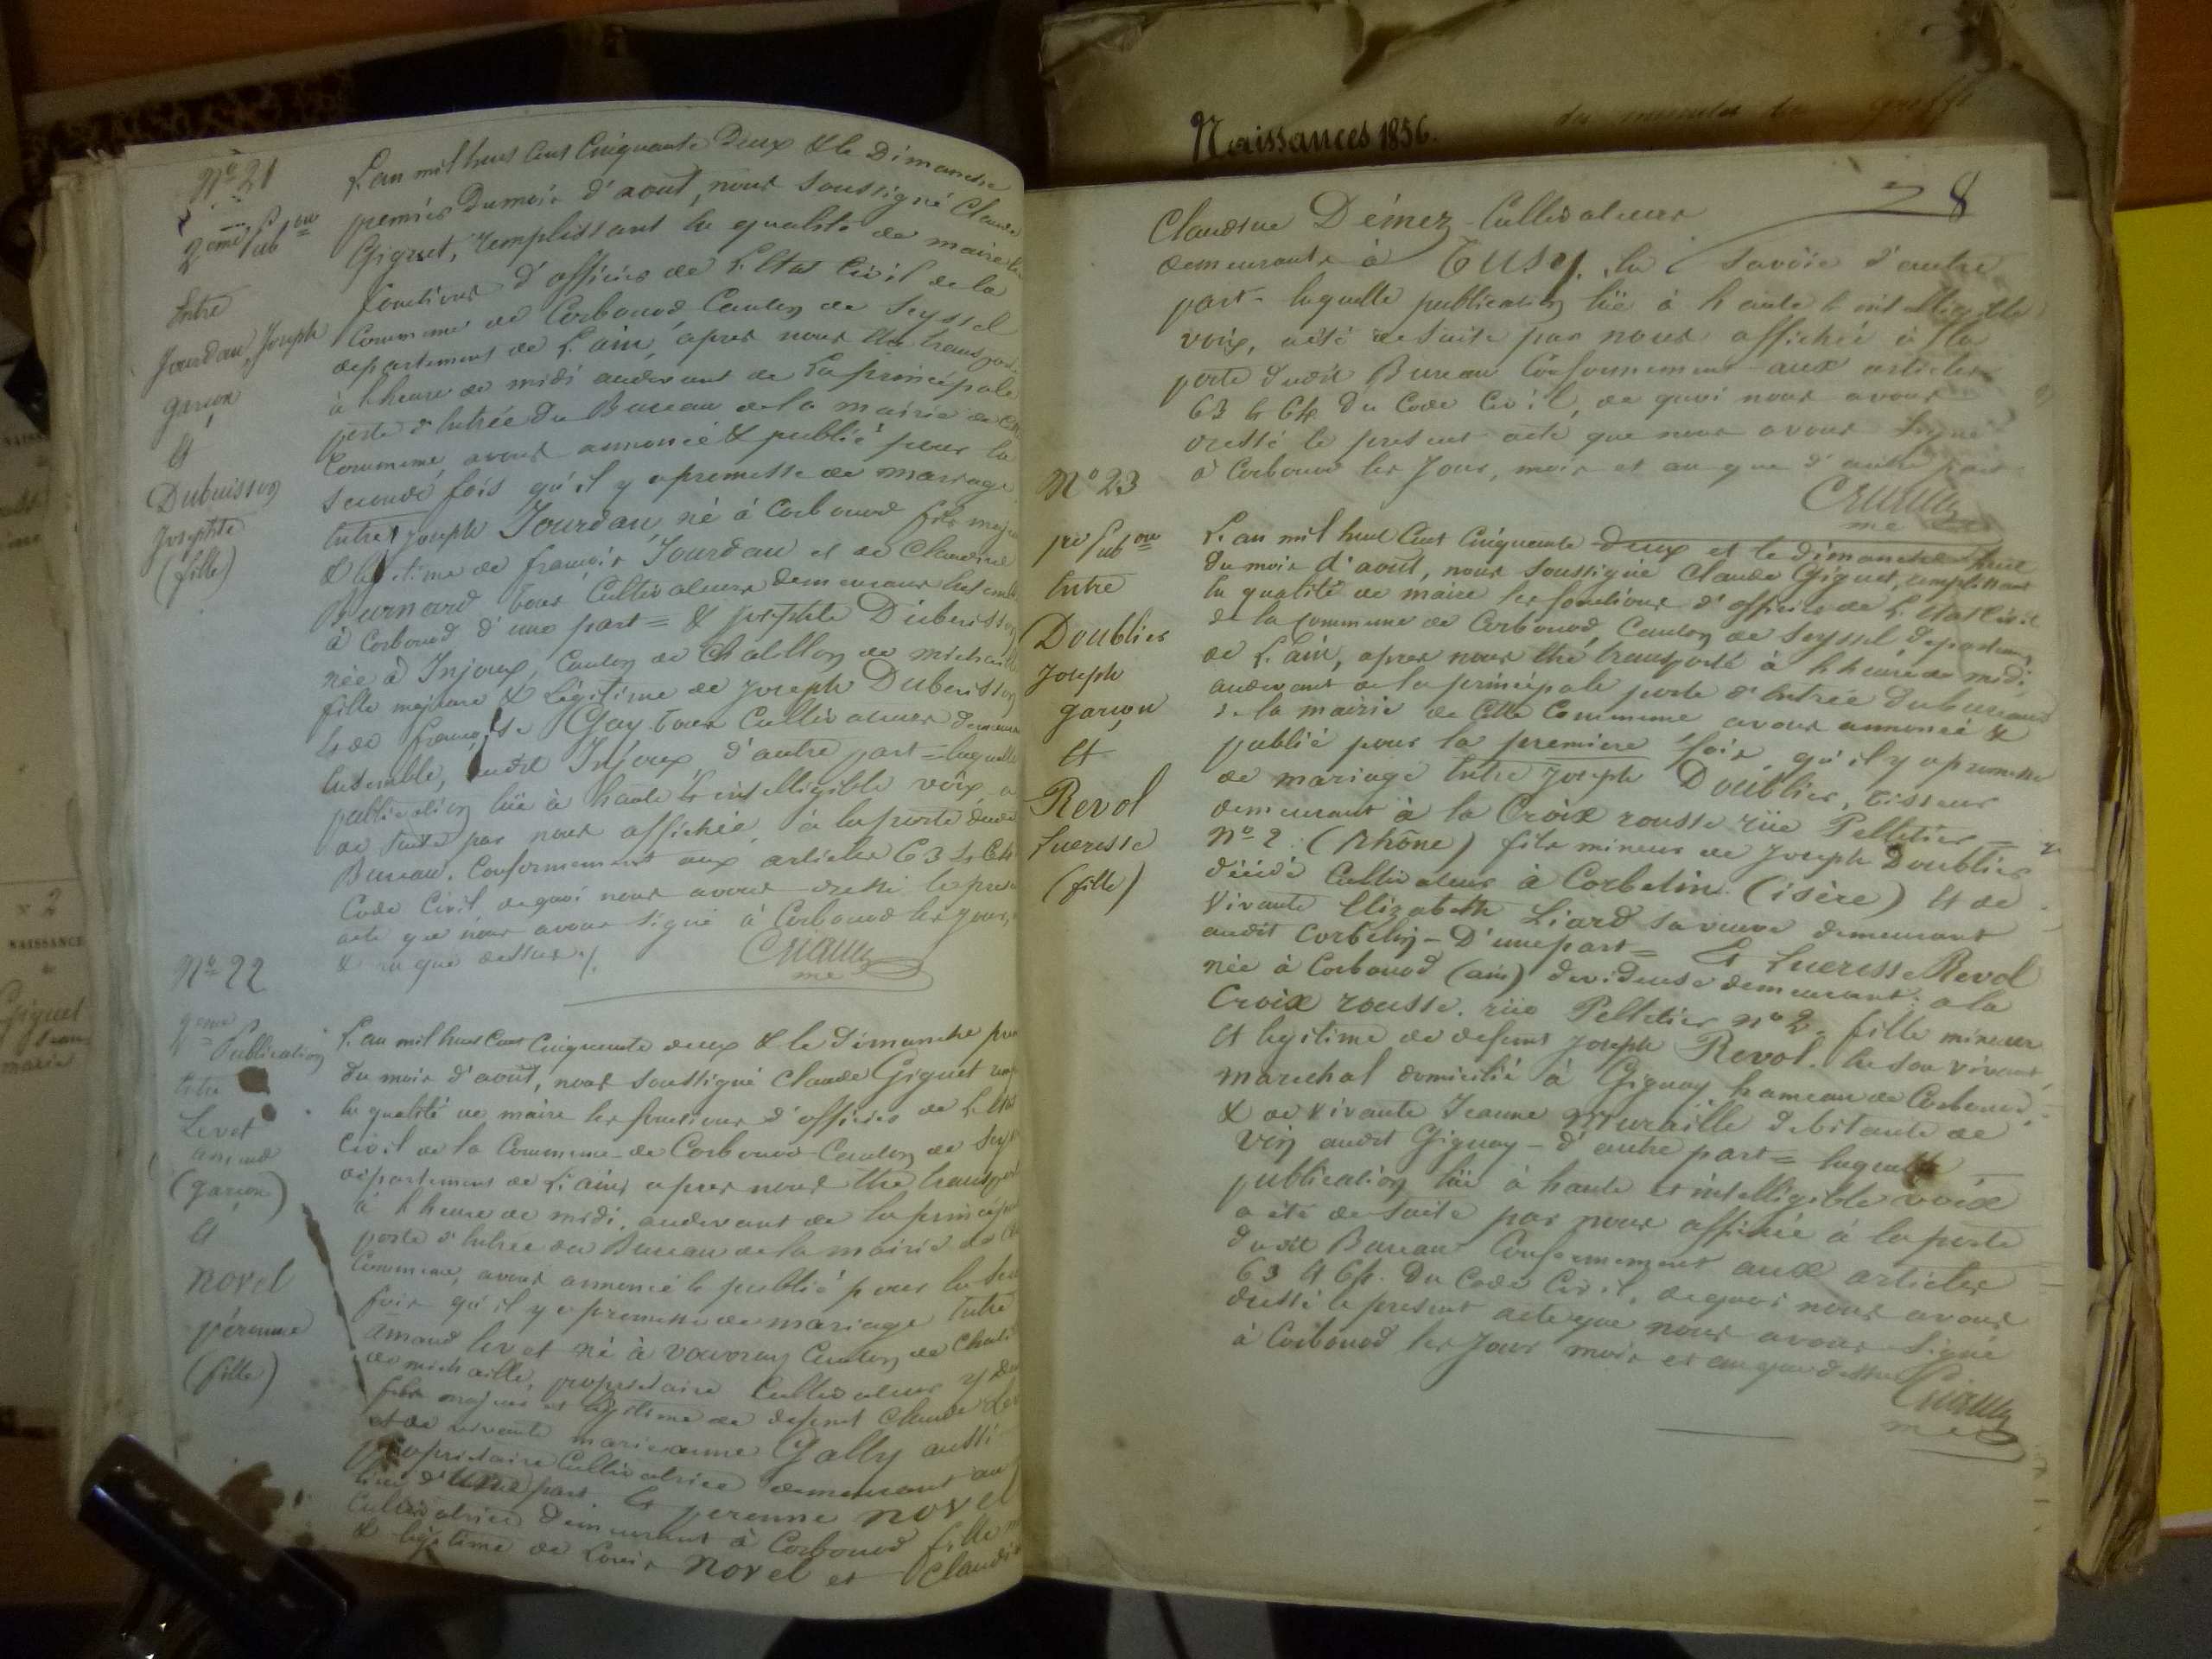 Nº 21
2ème Pub on
Entre
Jourdan, Joseph
garçon
et
Dubuisson
Josephte
(fille)
L'an mil huit cent cinquante deux & le Dimanche
premier du mois d'aout, nous soussigné Claude
Giguet, remplissant la qualité de maire les
fonctions d'officier de l'Etat civil de la
Commune de Corbonod Canton de Seyssel
departement de L'ain, apres nous etre transporté
à l'heure de midi audevant de La principale
porte d'entrée du Bureau de la mairie de cette
Commune, avons annoncé & publié pour la
seconde fois qu'il y a promesse de mariage
entre Joseph Jourdan, né à Corbonod fils majeur
& legitime de françois Jourdan et de Claudine
Burnard tous Cultivateurs demeurant ensemble
à Corbonod d'une part = & Josephte Dubuisson
née à Injoux, Canton de Chatillon de michaille
fille majeure & Légitime de Joseph Dubuisson
& de françoise Gay tous Cultivateurs demeurant
ensemble, audit Injoux, d'autre part = laquelle
publication lüe à haute & intelligible voix, a
de suite par nous affichée, à la porte dudit
Bureau, Conformement aux articles 63 & 64
Code Civil, de quoi nous avons dressé le present
acte que nous avons signé à Corbonod les jours,
& an que dessus ./.
me
Nº 22
2eme
Publication
Entre
Levet
amand
(garçon)
et
novel
pérenne
(fille)
L'an mil huit cent cinquante deux & le Dimanche
du mois d'aout, nous soussigné Claude Giguet
la qualité de maire les fonctions d'officier de l'Etat
Civil de la Commune de Corbonod Canton de
departement de L'ain, apres nous etre transporté
à l'heure de midi, audevant de la principale
porte d'entrée du Bureau de la mairie de
Commune, avons annoncé & publié pour la
fois qu'il y a promesse de mariage entre
amand levet né à vouvray Canton de
de michaille, proprietaire Cultivateur y
fils majeur et légitime de defunt Claude
et de vivante marieanne Gally aussi
proprietaire Cultivatrice demeurant au
lieu d'une part Et perenne novel
Cultivatrice demeurant à Corbonod fille
& légitime de Louis Novel et Claudine
Naissances 1856.
8
Claudine Démez Cultivateurs
demeurants à Tusy, en Savoie d'autre
part - laquelle publication lüe à haute & intelligible
voix, a été de suite par nous affichée à la
porte dudit Bureau Conformement aux articles
63 & 64 du Code Civil, de quoi nous avons
dressé le present acte que nous avons signé
à Corbonod les Jour, mois et an que d'autre part
me
Nº 23
pre Pub on
Entre
Doublier
Joseph
garçon
et
Revol
Lucresse
(fille)
L'an mil huit cent cinquante deux et le dimanche huit
du mois d'aout, nous soussigné Claude Giguet, remplissant
la qualité de maire les fonctions d'officier de l'Etat Civil
de la Commune de Corbonod, Canton de Seyssel departement
de L'ain, apres nous etre transporté à l'heure de midi,
audevant de la principale porte d'entrée du bureau
de la mairie de cette Commune avons annoncé &
publié pour la premiere fois, qu'il y a promesse
de mariage entre Joseph Doublier, tisseur
demeurant à la Croix rousse rüe Pelletier
Nº 2. (Rhône) fils mineur de Joseph Doublier
décédé Cultivateur à Corbelin. (isère) et de
vivante Elizabeth Liard sa veuve demeurant
audit Corbelin - D'une part = Et Lucresse Revol
née à Corbonod (ain) devideuse demeurant à la
Croix rousse. rüe Pelletier nº 2. fille mineure
et legitime de defunt Joseph Revol. en son vivant,
marechal domicilié à Gignay, hameau de Corbonod.
& de vivante Jeanne Muraille debitante de
vin audit Gignay - d'autre part = laquelle
publication lüe à haute et intelligible voix
a été de suite par nous affichée à la porte
dudit Bureau Conformement aux articles
63 et 64. du Code Civil, de quoi nous avons
dressé le present acte que nous avons signé
à Corbonod les Jour mois et an que dessus
me